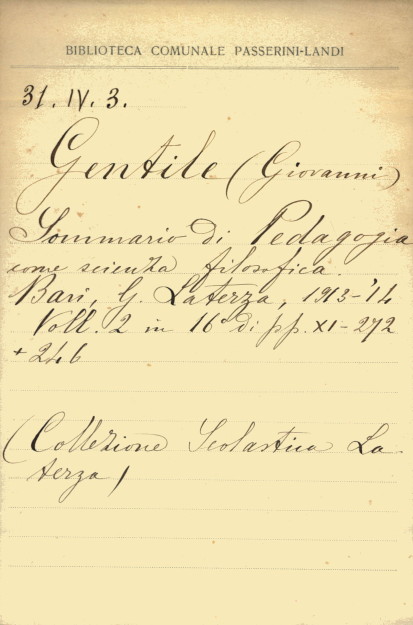 BIBLIOTECA COMUNALE PASSERINI-LANDI
31. IV. 3.
Gentile (Giovanni)
Sommario di Pedagogia
come scienza filosofica.
Bari, G. Laterza, 1913-'14
Voll. 2 in 16° di pp. XI-272
+ 246
(Collezione Scolastica La-
terza)